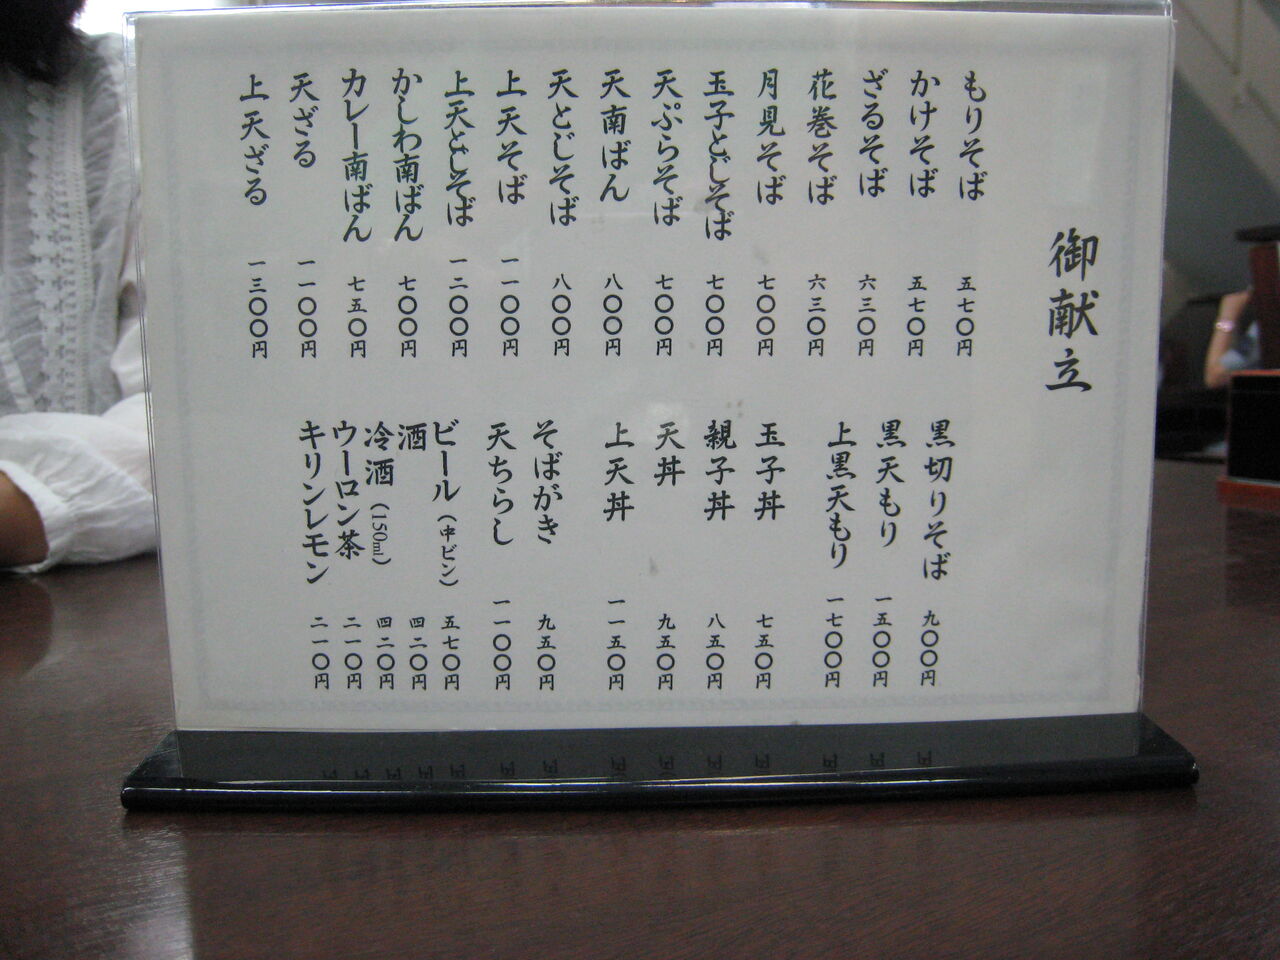 御献立
もりそば 五七〇円
かけそば 五七〇円
ざるそば 六三〇円
花巻そば 六三〇円
月見そば 七〇〇円
玉子とじそば 七〇〇円
天ぷらそば 七〇〇円
天南ばん 八〇〇円
天とじそば 八〇〇円
上天そば 一一〇〇円
上天とじそば 一二〇〇円
かしわ南ばん 七〇〇円
カレー南ばん 七五〇円
天ざる 一一〇〇円
上天ざる 一三〇〇円
黒切りそば 九〇〇円
黒天もり 一五〇〇円
上黒天もり 一七〇〇円
玉子丼 七五〇円
親子丼 八五〇円
天丼 九五〇円
上天丼 一一五〇円
そばがき 九五〇円
天ちらし 一一〇〇円
ビール(中ビン) 五七〇円
酒 四二〇円
冷酒(150ml) 四二〇円
ウーロン茶 二一〇円
キリンレモン 二一〇円